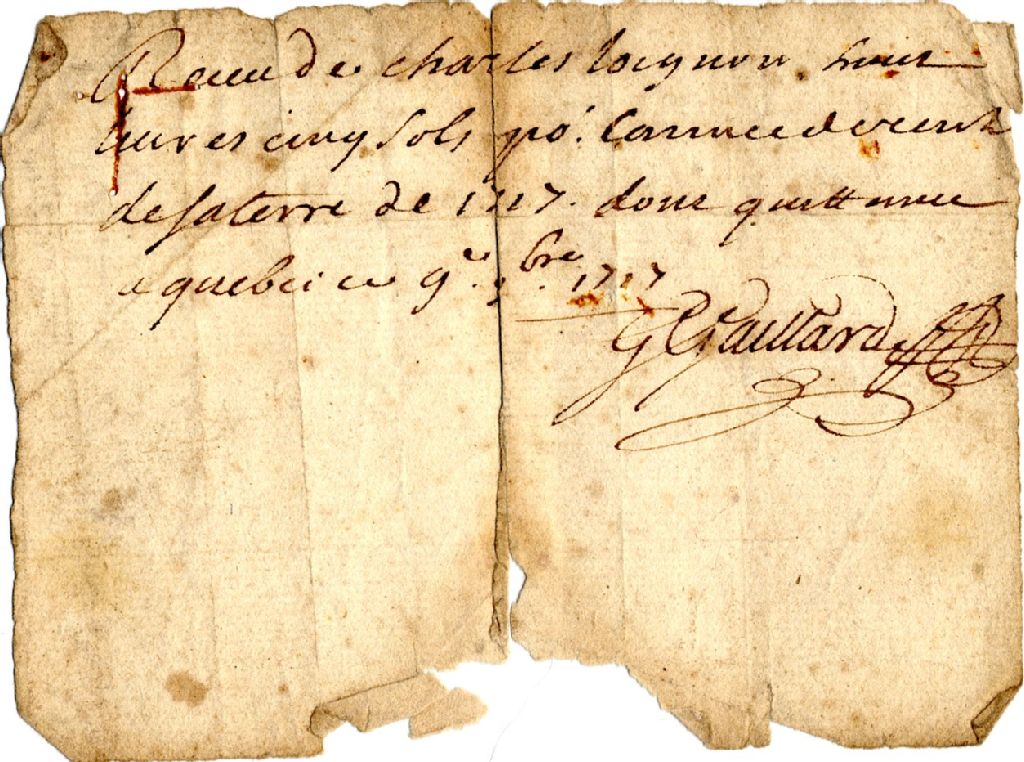 Receu de charles loignon huit
livres cinq sols po.r lannee de rent
de sa terre de 1717. dont quittance
a quebec ce 9e. 9bre. 1717
G Gaillard